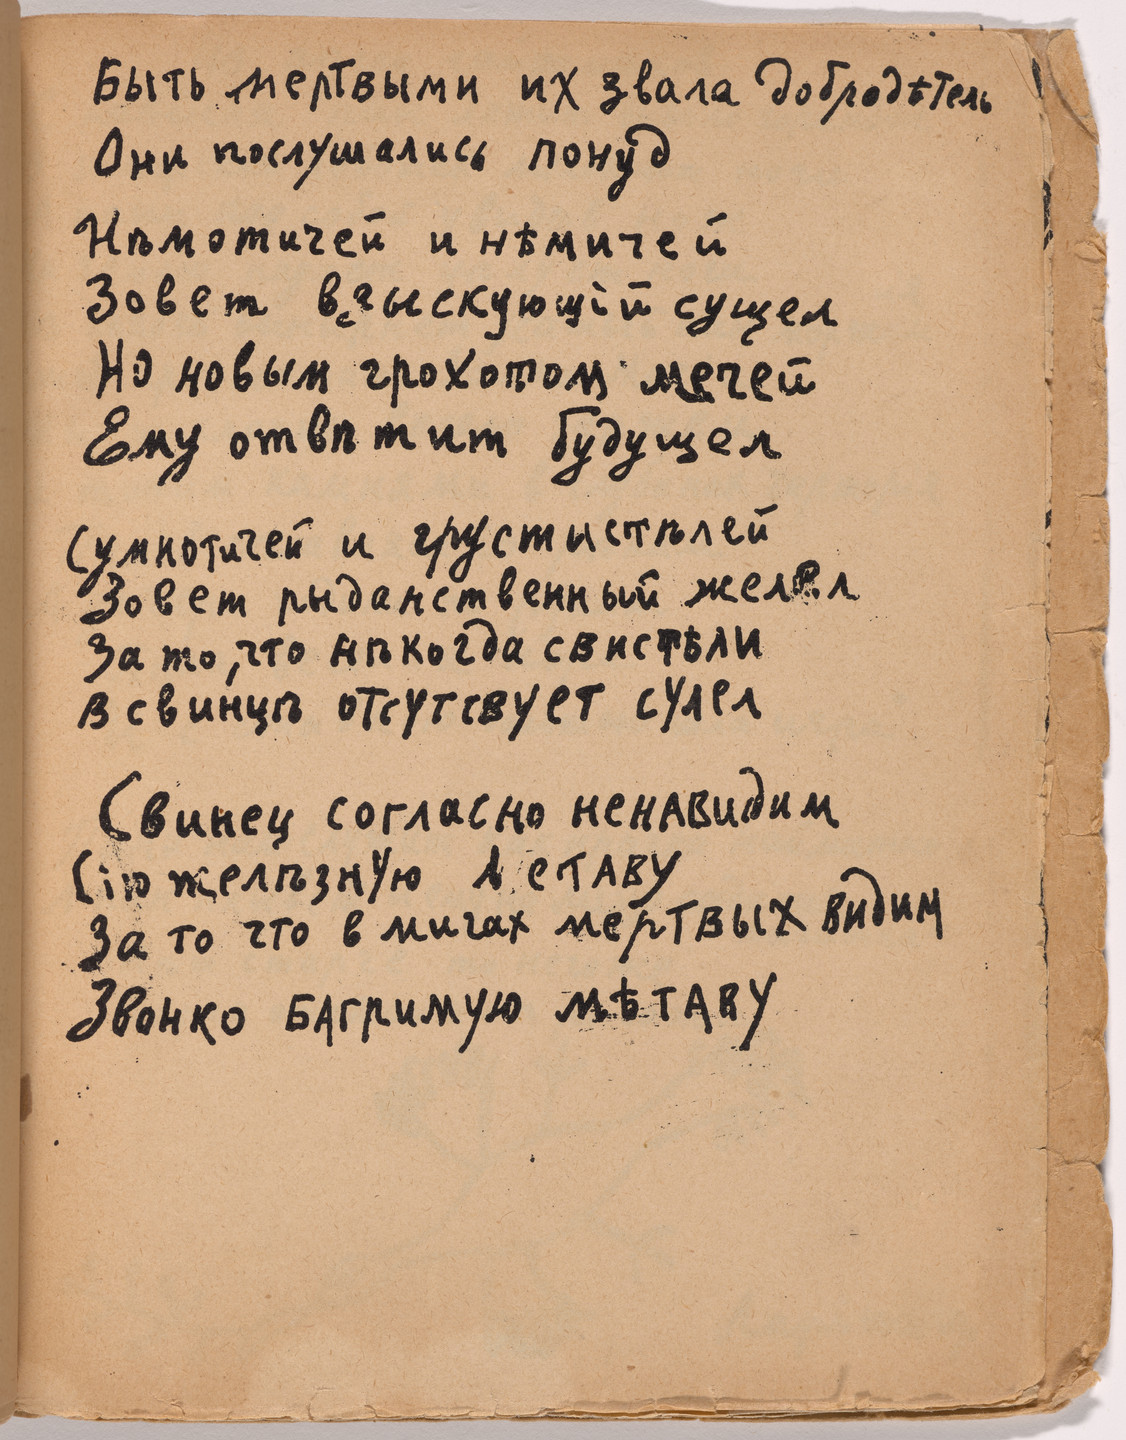 Быть мертвыми их звала добродѣтель
Они послушались понуд
Нѣмотичей и нѣмичей
Зовет взыскующій сущел
Но новым грохотом мечей
Ему отвѣтит будущел
Сумнотичей и грустистѣлей
Зовет рыданственный желел
За то, что нѣкогда свистѣли
В свинцѣ отсутсвует сулел
Свинец согласно ненавидим
Сію желѣзную летаву
За то что в мигах мертвых видим
Звонко багримую мѣтаву